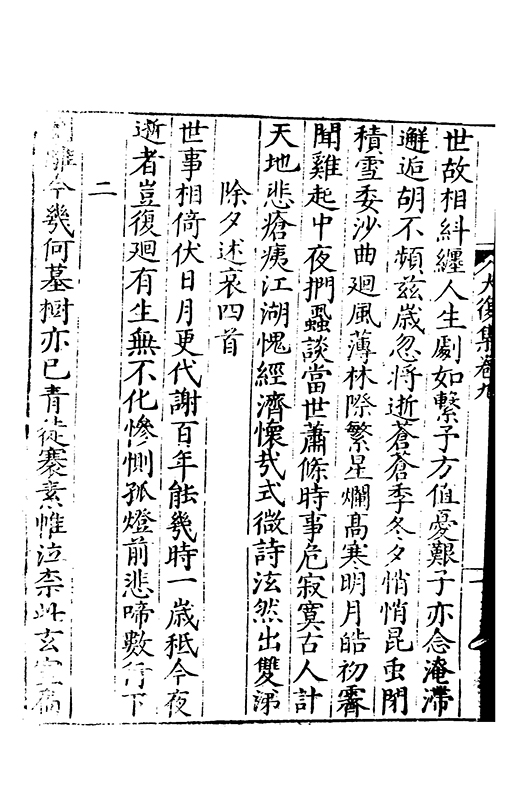 大復集卷九
世故相糾纏人生劇如繫予方值憂艱子亦念淹滯
邂逅胡不頻兹歲忽將逝蒼蒼季冬夕悄悄昆虫閉
積雪委沙曲廻風薄林際繁星爛高寒明月皓初霽
聞雞起中夜捫蝨談當世蕭條時事危寂寞古人計
天地悲瘡痍江湖愧經濟懷哉式微詩泫然出雙涕
除夕述哀四首
世事相倚伏日月更代謝百年能幾時一歲秪今夜
逝者豈復廻有生無不化慘惻孤燈前悲啼數行下
二
離今幾何墓樹亦已青徒褰素帷泣柰此玄